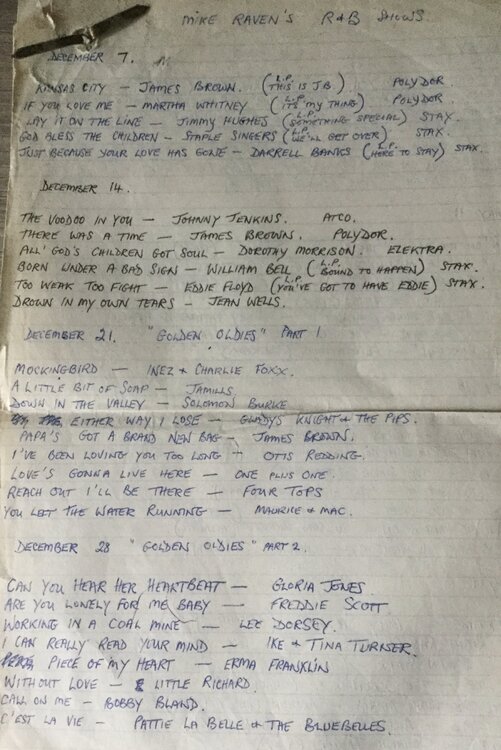 MIKE RAVEN'S R&B SHOWS.
DECEMBER 7.
KANSAS CITY — JAMES BROWN. (L.P. THIS IS J.B.) POLYDOR
IF YOU LOVE ME — MARTHA WHITNEY (L.P. IT'S MY THING) POLYDOR.
LAY IT ON THE LINE — JIMMY HUGHES (L.P. SOMETHING SPECIAL) STAX.
GOD BLESS THE CHILDREN — STAPLE SINGERS (L.P. WE'LL GET OVER) STAX.
JUST BECAUSE YOUR LOVE HAS GONE — DARRELL BANKS (L.P. HERE TO STAY) STAX.
DECEMBER 14.
THE VOODOO IN YOU — JOHNNY JENKINS. ATCO.
THERE WAS A TIME — JAMES BROWN. POLYDOR.
ALL' GOD'S CHILDREN GOT SOUL — DOROTHY MORRISON. ELEKTRA.
BORN UNDER A BAD SIGN — WILLIAM BELL (L.P. BOUND TO HAPPEN) STAX.
TOO WEAK TOO FIGHT — EDDIE FLOYD (L.P. YOU'VE GOT TO HAVE EDDIE) STAX.
DROWN IN MY OWN TEARS — JEAN WELLS.
DECEMBER 21. "GOLDEN OLDIES" PART 1
MOCKINGBIRD — INEZ & CHARLIE FOXX.
A LITTLE BIT OF SOAP — JAMILLS
DOWN IN THE VALLEY — SOLOMON BURKE
EITHER WAY I LOSE — GLADYS KNIGHT & THE PIPS.
PAPA'S GOT A BRAND NEW BAG — JAMES BROWN.
I'VE BEEN LOVING YOU TOO LONG — OTIS REDDING.
LOVE'S GONNA LIVE HERE — ONE PLUS ONE.
REACH OUT I'LL BE THERE — FOUR TOPS
YOU LEFT THE WATER RUNNING — MAURICE & MAC.
DECEMBER 28 "GOLDEN OLDIES" PART 2.
CAN YOU HEAR HER HEARTBEAT — GLORIA JONES
ARE YOU LONELY FOR ME BABY — FREDDIE SCOTT
WORKING IN A COAL MINE — LEE DORSEY.
I CAN REALLY READ YOUR MIND — IKE & TINA TURNER.
PIECE OF MY HEART — ERMA FRANKLIN
WITHOUT LOVE — LITTLE RICHARD.
CALL ON ME — BOBBY BLAND.
C'EST LA VIE — PATTIE LA BELLE & THE BLUEBELLES.